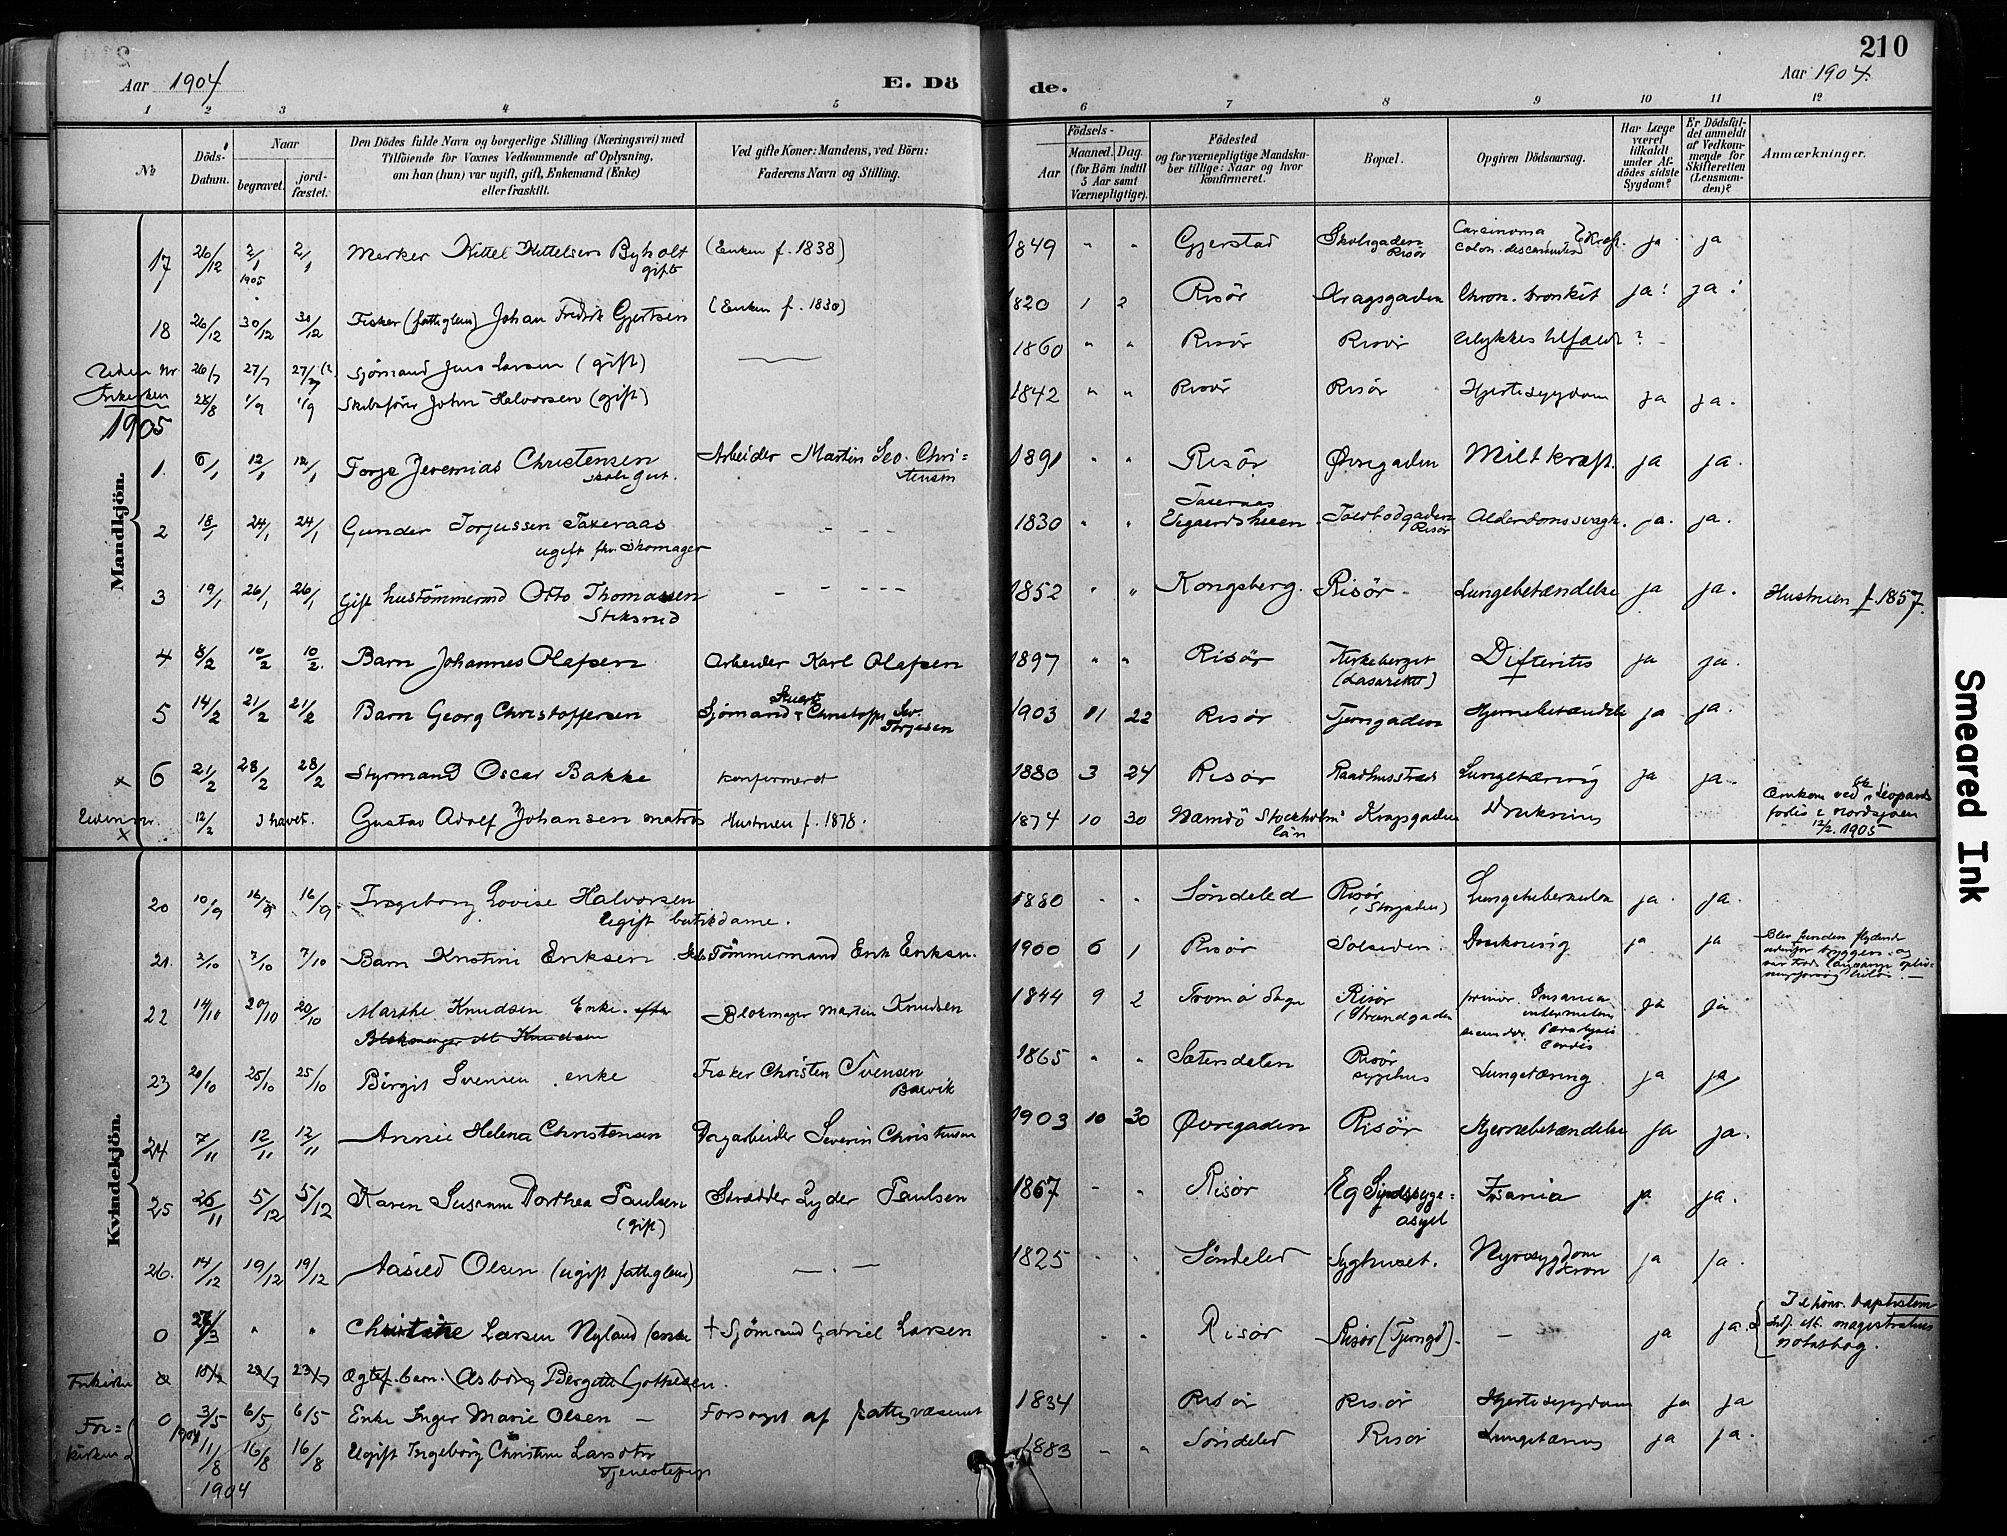 210
Aar 1904 E. Dö de. Aar 1904.
1 2 3 4 5 6 7 8 9 10 11 12
No
Döds-Datum.
Naar
begravet.
jord-fæstet.
Den Dödes fulde Navn og borgerlige Stilling (Næringsvei) med
Tilföiende for Voxnes Vedkommende af Oplysning,
om han (hun) var ugift, gift, Enkemand (Enke)
eller fraskilt.
Ved gifte Koner: Mandens, ved Börn:
Faderens Navn og Stilling.
Födsels-
Aar
Maaned. Dag.
(for Börn indtil
5 Aar samt
Værnepligtige).
Födested
og for værnepligtige Mandskaber tillige: Naar og hvor
konfirmeret.
Bopæl.
Opgiven Dödsaarsag.
Har Læge været tilkaldt under Afdödes sidste Sygdom?
Er Dödsfaldet anmeldt af Vedkommende for Skifteretten (Lensmanden)?
Anmærkninger.
Mandkjön.
17 26/12 2/1 1905 2/1 Kittel Kittelsen Byholt gift (Enken f. 1838) 1849 " " Gjerstad Skolegaden Risör Carcinoma colon. Kræft. ja ja
18 26/12 30/12 30/12 Fisker (fattiglem) Johan Fredrik Gjertsen (Enken f. 1830) 1820 1 2 Risör Kragsgaden Chron. bronkit ja! ja!
Uden Nr 26/7 27/7 Sjømand Jens Larsen (gift) 1860 " " Risör Risör Ulykkestilfælde ?
Frikirken 28/8 1/9 1/9 Skibsfører John Halvorsen (gift) 1842 " " Risör Risör Hjertesygdom ja ja.
1905
1. 6/1 12/1 12/1 Torje Jeremias Christensen skolegut. Arbeider Martin Seo. Christensen 1891 " " Risör Øvregaden Miltkræft. ja ja.
2 18/1 24/1 24/1 Gunder Torjussen Taxeraas ugift fhv. Skomager - - - 1830 " " Toldbodgaden Risör Alderdomssvagh. ja. ja.
3 19/1 26/1 26/1 Gift hustømmermd Otto Thomassen Stiksrud - - - - 1852 " " Kongsberg. Risör Lungebetændelse ja ja. Hustruen f. 1857.
4 8/2 10/2 10/2. Barn Johannes Olafsen Arbeider Karl Olafsen 1897 " " Risör Kirkeberget (Lasarettet) Difteritis ja ja.
5 14/2 21/2 21/2 Barn Georg Christoffersen Sjømand Christoffer Sev. Torjesen 1903 11 22 Risör Tjengaden Hjernebetændelse ja ja.
x 6 21/2 28/2 28/2 Styrmand Oscar Bakke konfirmeret 1880 3 24 Risör Raadhusstræd Lungetæring ja ja.
Uden nr. x 12/2 I havet. Gustav Adolf Johansen matros Hustruen f. 1878. 1874 10 30 Namdö Stockholms län Kragsgaden Drukning Omkom ved Leopards forlis i Nordsjøen 12/2. 1905
Kvindekjön.
20 10/9 16/9 16/9 Ingeborg Lovise Halvorsen Ugift butikdame. 1880 " " Søndeled Risör (Storgaden) Lungetuberkulose ja. ja.
21. 2/10 7/10 7/10 Barn Kristine Eriksen Tømmermand Erik Eriksen. 1900 6 1 Risør Solsiden. Drukning ja ja Blev funden flydende udenfor bryggen og
22 14/10 20/10 20/10 Marthe Knudsen Enke. efter Blokmager Martin Knudsen 1844 9 2 Tromø Risör (Strandgaden primær. Insania secundær Paralysis Cordis ja ja
23 20/10 25/10 25/10 Birgit Svensen enke Fisker Christen Svensen 1865 " " Sætersdalen Risör sygehus Lungetæring. ja ja
24 7/11 12/11 12/11 Annie Helena Christensen Dagarbeider Severin Christensen 1903 10 30 Øvregaden Risör Hjernebetændelse ja ja.
25 26/11 5/12 5/12 Karen Susanne Dorthea Paulsen (gift) Skrædder Lyder Paulsen 1867 - " Risør Eg Sindssyge-asyl Insania ja ja.
26. 14/12 19/12 19/12 Aasild Olsen (ugift fattiglem) 1825 " " Søndeled Syghuset. Nyresygdom kron ja ja.
0 " " Christine Larsen Nyland (enke † Sjømand Gabriel Larsen " " Risör Risör (Tjengd). - ja ja. baptistsam. magistratens notatbog.
Frikirken Barn. Asborg Bergitte
Fri-kirken 0 3/5 6/5 6/5 Enke Inger Marie Olsen - Forsørget af fattigvæsenet 1834 Risør Risör Hjertesygdom ja ja
1904 11/8 16/8 16/8 Ugift Ingeborg Christine Larsdtr Tjenestepige 1883 - " Søndeled Risör Lungetæring ja ja.
1904
Smeared Ink